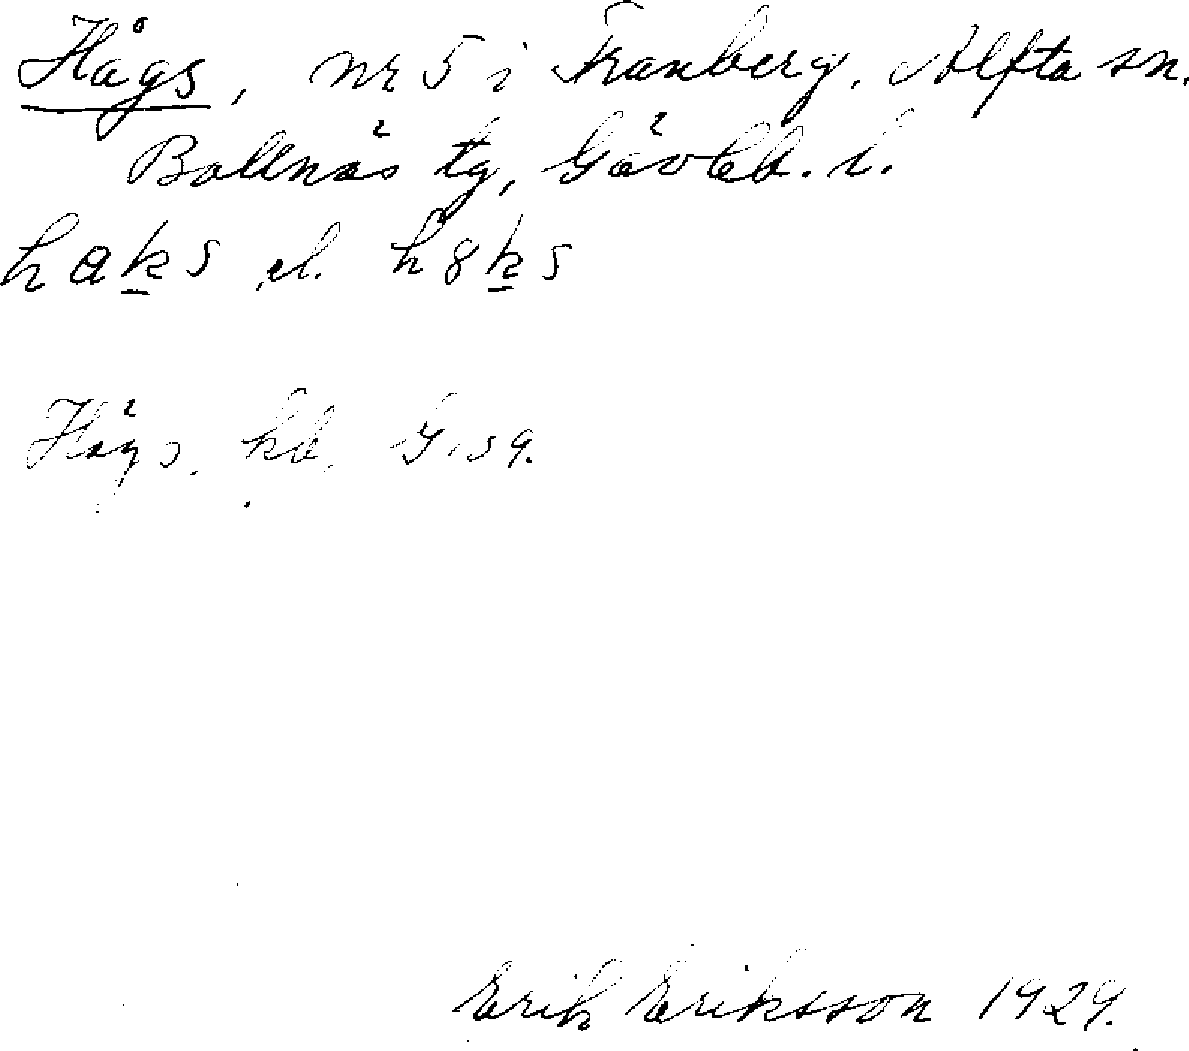 Hågs, nr 5 i Tranberg. Alfta sn.
Bollnäs tg, Gävleb. l.
haks el. h8ks
Hågs. kb. G:59.
Erik Eriksson 1929.